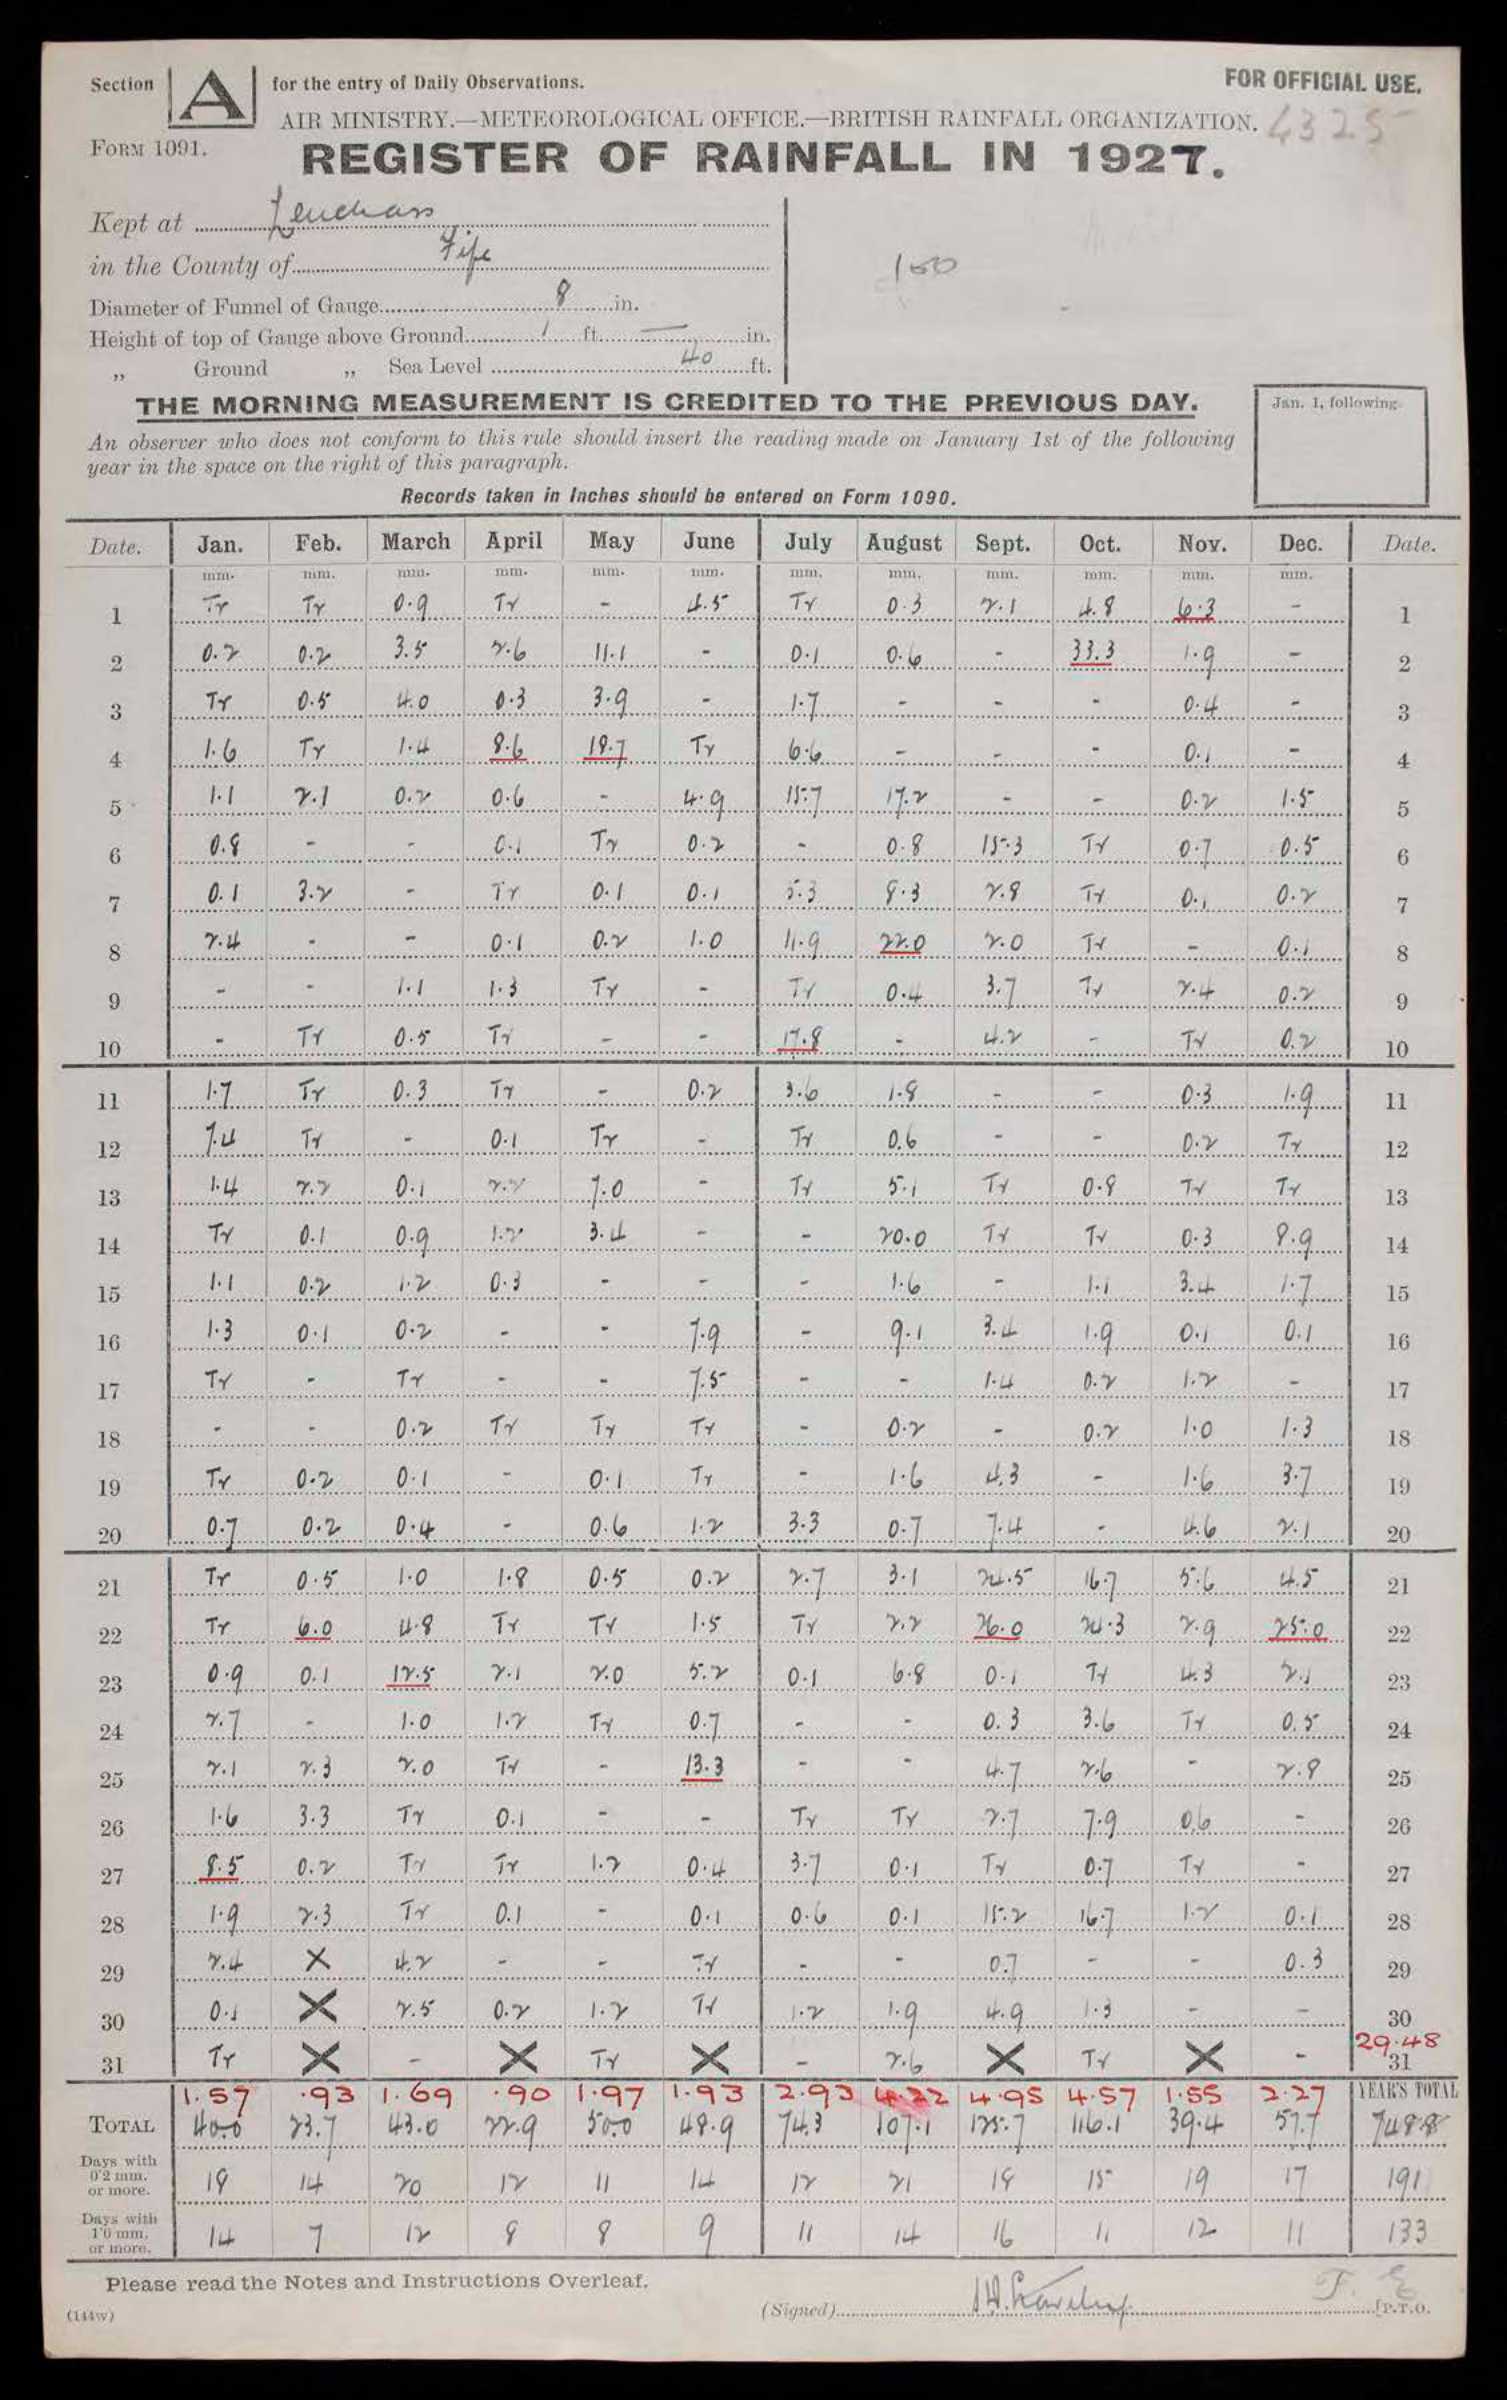 Section A for the entry of Daily Observations. FOR OFFICIAL USE.
AIR MINISTRY.—METEOROLOGICAL OFFICE.—BRITISH RAINFALL ORGANIZATION. 4325
FORM 1091. REGISTER OF RAINFALL IN 1927.
Kept at Leuchars
in the County of Fife
150
Diameter of Funnel of Gauge 8 in.
Height of top of Gauge above Ground 1 ft. — in.
„ Ground „ Sea Level 40 ft.
THE MORNING MEASUREMENT IS CREDITED TO THE PREVIOUS DAY.
Jan. 1, following.
An observer who does not conform to this rule should insert the reading made on January 1st of the following
year in the space on the right of this paragraph.
Records taken in Inches should be entered on Form 1090.
Date. Jan. Feb. March April May June July August Sept. Oct. Nov. Dec. Date.
mm. mm. mm. mm. mm. mm. mm. mm. mm. mm. mm. mm.
1 Tr Tr 0.9 Tr - 4.5 Tr 0.3 2.1 4.8 6.3 - 1
2 0.2 0.2 3.5 2.6 11.1 - 0.1 0.6 - 33.3 1.9 - 2
3 Tr 0.5 4.0 0.3 3.9 - 1.7 - - - 0.4 - 3
4 1.6 Tr 1.4 8.6 18.7 Tr 6.6 - - - 0.1 - 4
5 1.1 2.1 0.2 0.6 - 4.9 15.7 17.2 - - 0.2 1.5 5
6 0.8 - - 0.1 Tr 0.2 - 0.8 15.3 Tr 0.7 0.5 6
7 0.1 3.2 - Tr 0.1 0.1 5.3 8.3 2.8 Tr 0.1 0.2 7
8 2.4 - - 0.1 0.2 1.0 11.9 22.0 2.0 Tr - 0.1 8
9 - - 1.1 1.3 Tr - Tr 0.4 3.7 Tr 2.4 0.2 9
10 - Tr 0.5 Tr - - 17.8 - 4.2 - Tr 0.2 10
11 1.7 Tr 0.3 Tr - 0.2 3.6 1.8 - - 0.3 1.9 11
12 7.4 Tr - 0.1 Tr - Tr 0.6 - - 0.2 Tr 12
13 1.4 2.2 0.1 2.2 7.0 - Tr 5.1 Tr 0.8 Tr Tr 13
14 Tr 0.1 0.9 1.2 3.4 - - 20.0 Tr Tr 0.3 8.9 14
15 1.1 0.2 1.2 0.3 - - - 1.6 - 1.1 3.4 1.7 15
16 1.3 0.1 0.2 - - 7.9 - 9.1 3.4 1.9 0.1 0.1 16
17 Tr - Tr - - 7.5 - - 1.4 0.2 1.2 - 17
18 - - 0.2 Tr Tr Tr - 0.2 - 0.2 1.0 1.3 18
19 Tr 0.2 0.1 - 0.1 Tr - 1.6 4.3 - 1.6 3.7 19
20 0.7 0.2 0.4 - 0.6 1.2 3.3 0.7 7.4 - 4.6 2.1 20
21 Tr 0.5 1.0 1.8 0.5 0.2 2.7 3.1 24.5 16.7 5.6 4.5 21
22 Tr 6.0 4.8 Tr Tr 1.5 Tr 2.2 26.0 24.3 2.9 25.0 22
23 0.9 0.1 12.5 2.1 2.0 5.2 0.1 6.8 0.1 Tr 4.3 2.1 23
24 2.7 - 1.0 1.2 Tr 0.7 - - 0.3 3.6 Tr 0.5 24
25 2.1 2.3 2.0 Tr - 13.3 - - 4.7 2.6 - 2.8 25
26 1.6 3.3 Tr 0.1 - - Tr Tr 2.7 7.9 0.6 - 26
27 8.5 0.2 Tr Tr 1.2 0.4 3.7 0.1 Tr 0.7 Tr - 27
28 1.9 2.3 Tr 0.1 - 0.1 0.6 0.1 15.2 16.7 1.2 0.1 28
29 2.4 X 4.2 - - Tr - - 0.7 - - 0.3 29
30 0.1 X 2.5 0.2 1.2 Tr 1.2 1.9 4.9 1.3 - - 30
29.48
31 Tr X - X Tr X - 2.6 X Tr X - 31
1.57 .93 1.69 .90 1.97 1.93 2.93 4.22 4.95 4.57 1.55 2.27 YEAR'S TOTAL
TOTAL 40.0 23.7 43.0 22.9 50.0 48.9 74.3 107.1 125.7 116.1 39.4 57.7 748.8
Days with 0'2 mm. or more. 18 14 20 12 11 14 12 21 18 15 19 17 191
Days with 1'0 mm. or more. 14 7 12 8 8 9 11 14 16 11 12 11 133
Please read the Notes and Instructions Overleaf.
(144w) (Signed) [P.T.O.